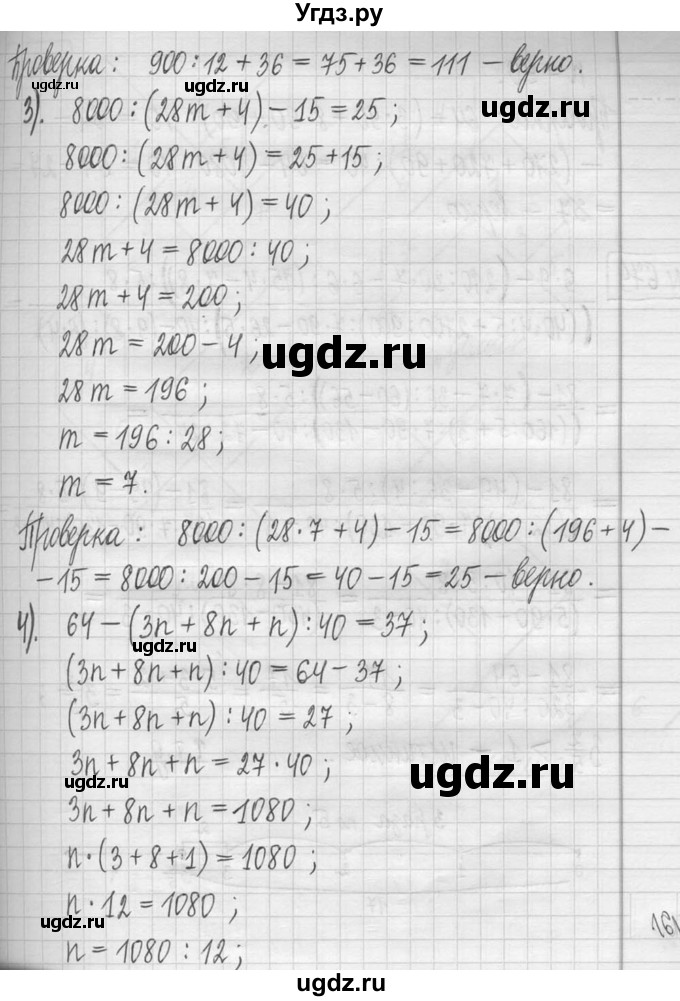 Угдз.ру
Проверка: 900:12+36=75+36=111 – верно.
ugdz.ru
3). 8000:(28m+4)-15=25;
8000:(28m+4)=25+15;
8000:(28m+4)=40;
28m+4=8000:40;
28m+4=200;
28m=200-4;
ugdz.ru
28m=196;
m=196:28;
m=7.
Проверка: 8000:(28·7+4)-15=8000:(196+4)-
-15=8000:200-15=40-15=25 – верно.
4). 64-(3n+8n+n):40=37;
ugdz.ru
(3n+8n+n):40=64-37;
(3n+8n+n):40=27;
3n+8n+n=27·40;
ugdz.ru
ugdz.ru
3n+8n+n=1080;
n·(3+8+1)=1080;
n·12=1080;
ugdz.ru
n=1080:12;
161
ugdz.ru